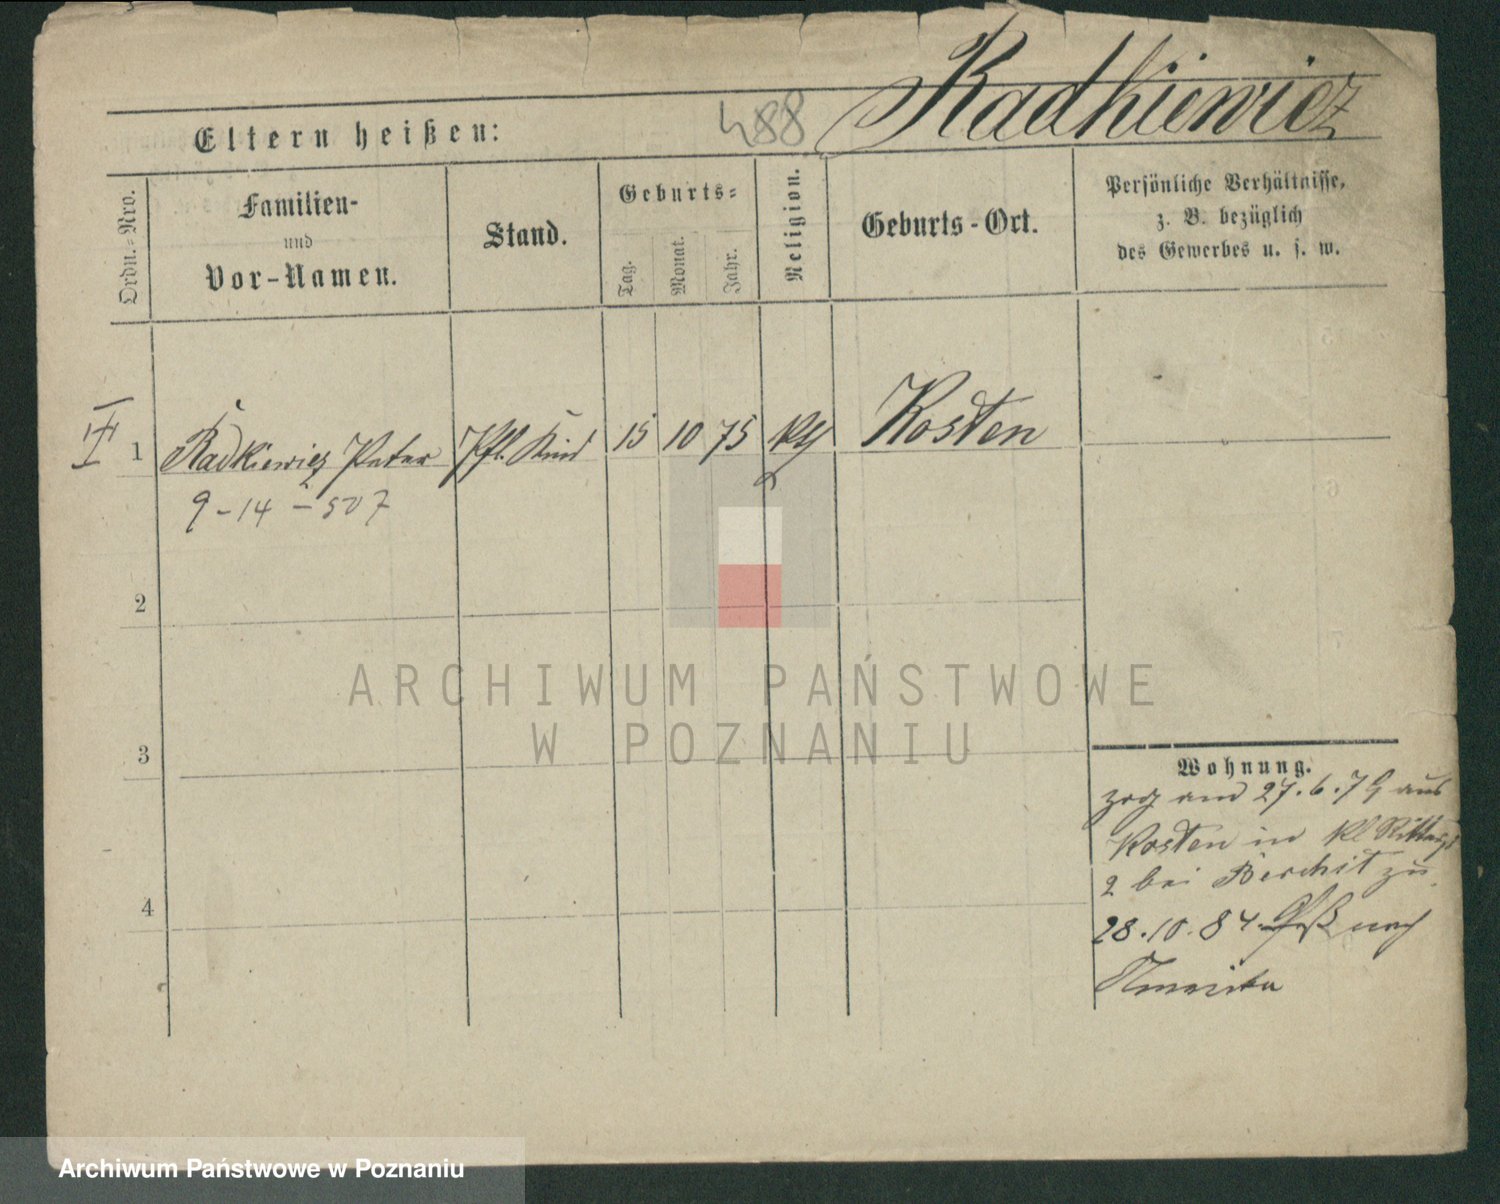 488 Radkiewicz
Eltern heißen:
Ordn.=Nro.
Familien-
und
Vor-Namen.
Stand.
Geburts=
Tag.
Monat.
Jahr.
Religion.
Geburts-Ort.
Persönliche Verhältnisse,
z. B. bezüglich
des Gewerbes u. s. w.
1 Radkiewicz Peter Pfl. Kind 15 10 75 Kosten
9-14-507
2
3
4
ARCHIWUM PAŃSTWOWE
W POZNANIU
Wohnung.
zog am 27.6.79 aus
Kosten in Kl
2 bei zu
28.10.84. nach
Archiwum Państwowe w Poznaniu